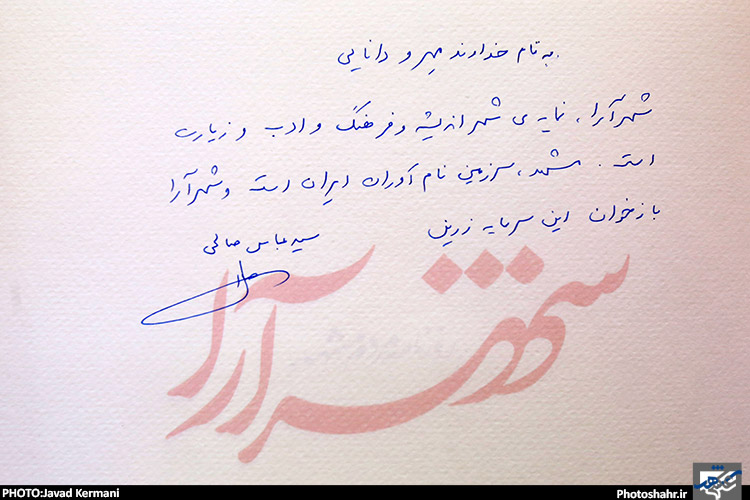 به نام خداوند مهر و دانایی.
شهرآرا، نمایه ی شهر اندیشه و فرهنگ و ادب و زیارت
است. مشهد، سرزمین نام آوران ایران است و شهرآرا
بازخوان این سرمایه زرین
سید عباس صالحی
شهرآرا
PHOTO:Javad Kermani
Photoshahr.ir